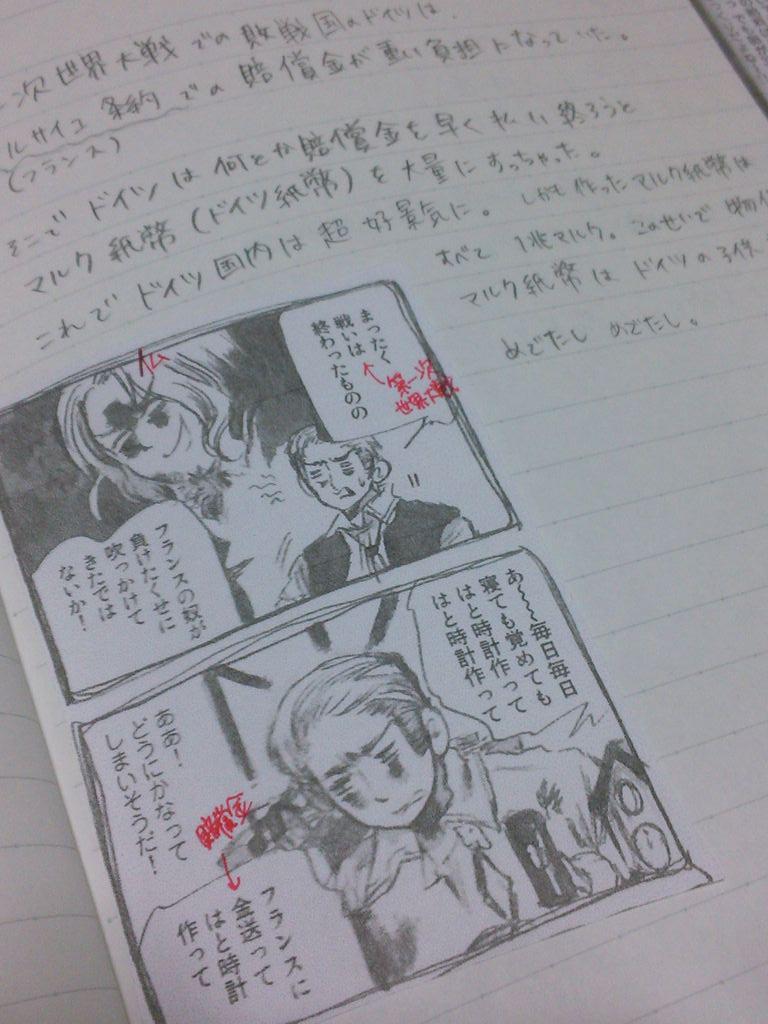 次世界大戦での敗戦国のドイツは、
ルサイユ条約での賠償金が重い負担になっていた。
(フランス)
そこでドイツは何とか賠償金を早く払い終ろうと
マルク紙幣(ドイツ紙幣)を大量にすっちゃった。
これでドイツ国内は超好景気に。しかも作ったマルク紙幣は
すべて1兆マルク。このせいで物価
マルク紙幣はドイツの子供
めでたしめでたし。
まったく
戦いは
終わったものの
第一次
世界大戦
仏
フランスの奴が
負けたくせに
吹っかけて
きたでは
ないか！
あ～～～毎日毎日
寝ても覚めても
はと時計作って
はと時計作って
フランスに
金送って
はと時計
作って
賠償金
ああ！
どうにかなって
しまいそうだ！